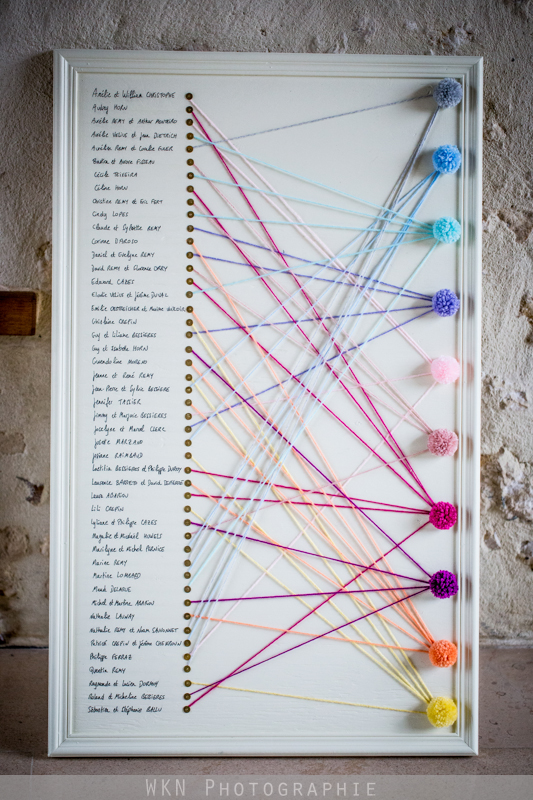 Amélie et William CHRISTOPHE
Aubry HORN
Aurélie REMY et Arthur MONTEIRO
Aurélie VESVE et Jean DIETRICH
Aurélien REMY et Coralie
et André
Cécile TEIXEIRA
Céline HORN
Christine REMY et Gil
Cindy LOPES
Claude et Sylvette REMY
Corinne
Daniel et Evelyne REMY
David REMY et Florence
Edouard CAZES
Elodie VESVE et Jérôme DUVAL
Emilie et Maxime
Ghislaine CREPIN
Guy et Liliane BESSIERES
Guy et Isabelle HORN
Gwendoline MORENO
Jeanne et René REMY
Jean-Pierre et Sylvie BESSIERE
Jennifer TASSIER
Jimmy et Marjorie BESSIERES
Jocelyne et Marcel CLERC
Josette MARZANO
Jordane RAIMBAUD
Laetitia BESSIERES et Philippe
Laurence BARRETO et David
Laura ARAGON
Lili CREPIN
Lysiane et Philippe CAZES
Magalie et Mickaël HOWESS
Marilyne et Michel PERNICE
Marine REMY
Martine LOMBARD
Maud DELARUE
Michel et Martine ARAGON
Nathalie LAUNAY
Nathalie REMY et Alain
Patrick CREPIN et Jérôme
Philippe FERRAZ
Quentin REMY
Raymonde et Lucien DURAMY
Roland et Micheline BESSIERES
Sébastien et Stéphanie BALLU
WKN PHOTOGRAPHIE